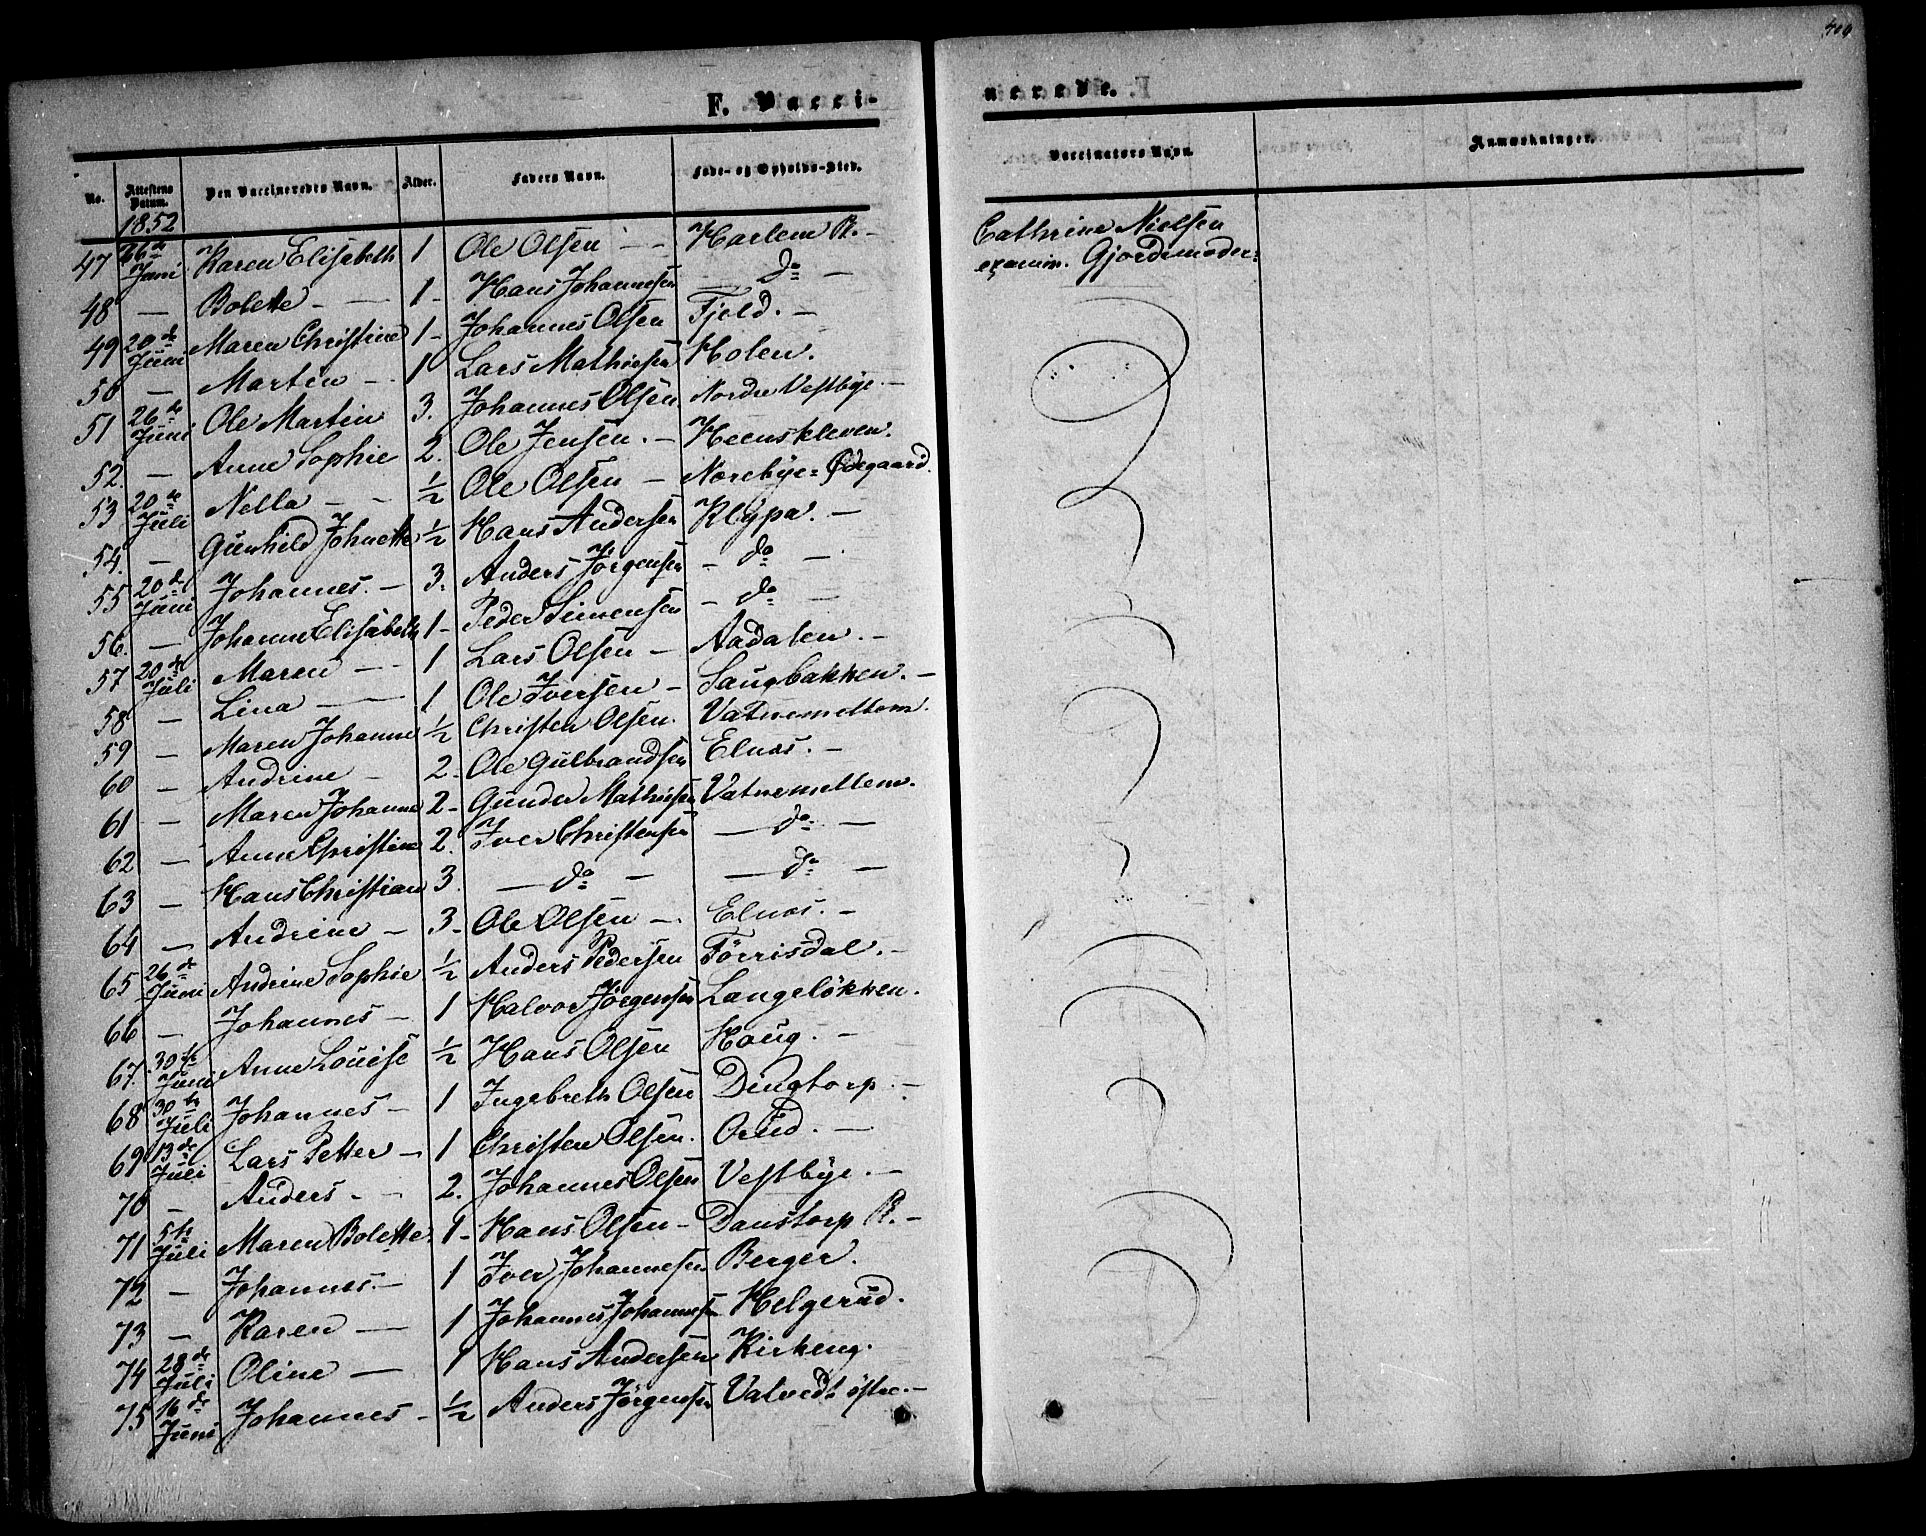 409
F. Vacci-
nerede.
No. Attestens Datum. Den Vaccineredes Navn. Alder. Faders Navn. Føde- og Opholds-Sted.
Vaccinators Navn. Anmærkninger.
1852
47 16de Juni Karen Elisabeth 1 Ole Olsen - - Harlem Pl. -
Cathrine Nielsen
examin. Gjordemoder:
48 — Bolette - — 1 - Hans Johannesen — do —
49 20de Juni Maren Christine 1 - Johannes Olsen Fjeld. -
50 — Martin - - 1 Lars Mathisen Holen.
51 26de Juni Ole Martin 3. Johannes Olsen Nordre Vestbye. -
52. — Anne Sophie 2. Ole Jensen. - Heenskleven.
53 20de Juli Nella - - ½ Ole Olsen - Norebye= Ødegaard.
54. — Gunhild Johnette ½ Hans Andersen Klypa. -
55 20de Juni Johannes. - 3. Anders Jörgensen - do -
56. — Johanne Elisabeth 1 - Peder Simensen - do —
57 20de Juli Maren - - 1 Lars Olsen - Aadalen. -
58 — Lina — 1 Ole Iversen - Saugbakken. -
59 — Maren Johanne ½ Christen Olsen. Vatnemellem.
60 — Andrine - 2. Ole Gulbrandsen Elnæs. -
61 — Maren Johanne 2 - Gunder Mathisen Vatnemellem.
62 — Anne Christine 2. Iver Christensen — do —
63 — Hans Christian 3. — do - — do —
64 — Andrine - 3 - Ole Olsen - Elnæs. -
65 26de Juni Andrine Sophie ½ Anders Pedersen Törrisdal. -
66 — Johannes - 1 Halvor Jörgensen Langelökken.
67. 30te Juni Anne Louise ½ Hans Olsen Haug. -
68 30te Juli Johannes - 1 Ingebreth Olsen Dingtorp. -
69 13de Juli Lars Petter - 1 Christen Olsen. Orud. —
70 — Anders - - 2. Johannes Olsen Vestbye. -
71 5te Juli Maren Bolette. 1 - Hans Olsen - Danstorp Pl. -
72 — Johannes. - 1 Iver Johannesen Berger.
73 — Karen — 1 Johannes Johannesen Helgerud.
74 28de Juli Oline — 1 Hans Andersen Kirkeng.
75 16de Juni Johannes - ½ Anders Jörgensen Vatvedt östre. -